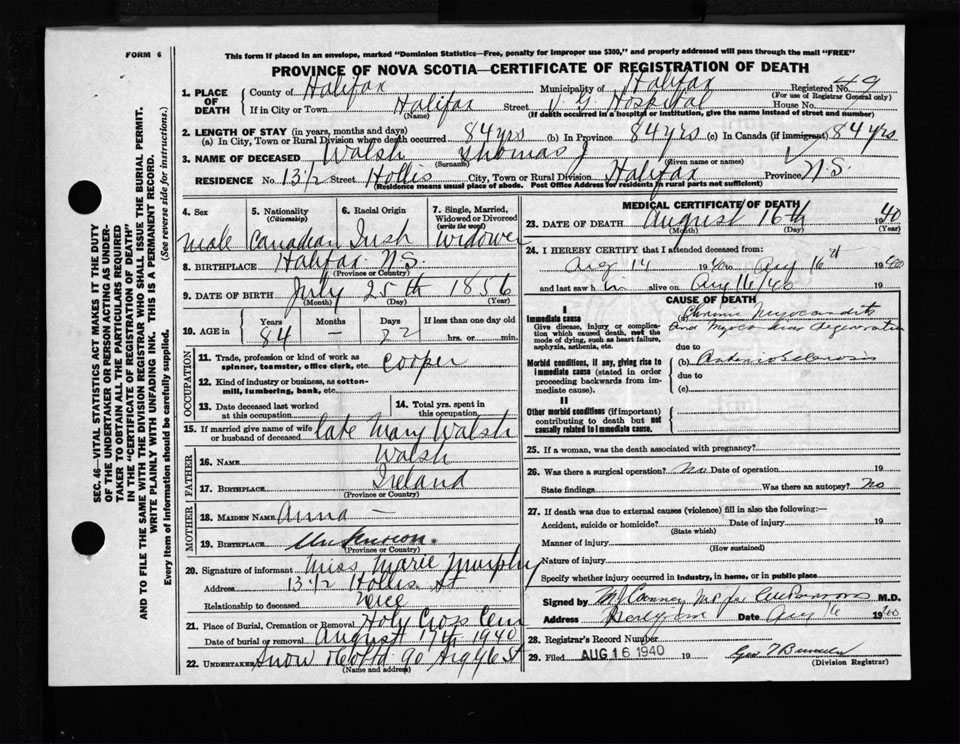 FORM 6
This form if placed in an envelope, marked "Dominion Statistics—Free, penalty for improper use $300," and properly addressed will pass through the mail "FREE"
PROVINCE OF NOVA SCOTIA—CERTIFICATE OF REGISTRATION OF DEATH
SEC. 46—VITAL STATISTICS ACT MAKES IT THE DUTY
OF THE UNDERTAKER OR PERSON ACTING AS UNDER-
TAKER TO OBTAIN ALL THE PARTICULARS REQUIRED
IN THE "CERTIFICATE OF REGISTRATION OF DEATH"
AND TO FILE THE SAME WITH THE DIVISION REGISTRAR WHO SHALL ISSUE THE BURIAL PERMIT.
WRITE PLAINLY WITH UNFADING INK. THIS IS A PERMANENT RECORD.
Every item of information should be carefully supplied. (See reverse side for instructions.)
1. PLACE OF DEATH
County of Halifax Municipality of Halifax Registered No. 49
(For use of Registrar General only)
If in City or Town Halifax Street V. G. Hospital House No.
(Name) (If death occurred in a hospital or institution, give the name instead of street and number)
2. LENGTH OF STAY (in years, months and days)
(a) In City, Town or Rural Division where death occurred 84 yrs (b) In Province 84 yrs (c) In Canada (if immigrant) 84 yrs
3. NAME OF DECEASED Walsh Thomas J
(Surname) (Given name or names)
RESIDENCE No. 13 1/2 Street Hollis City, Town or Rural Division Halifax Province N.S.
(Residence means usual place of abode. Post Office Address for residents in rural parts not sufficient)
4. Sex
male
5. Nationality (Citizenship)
Canadian
6. Racial Origin
Irish
7. Single, Married, Widowed or Divorced (write the word)
Widower
8. BIRTHPLACE Halifax N.S.
(Province or Country)
9. DATE OF BIRTH July 25th 1856
(Month) (Day) (Year)
10. AGE in Years 84 Months — Days 22 If less than one day old
hrs. or min.
OCCUPATION
11. Trade, profession or kind of work as spinner, teamster, office clerk, etc. Cooper
12. Kind of industry or business, as cotton-mill, lumbering, bank, etc.
13. Date deceased last worked at this occupation
14. Total yrs. spent in this occupation
15. If married give name of wife or husband of deceased late Mary Walsh
FATHER
16. NAME Walsh
17. BIRTHPLACE Ireland
(Province or Country)
MOTHER
18. MAIDEN NAME Anna —
19. BIRTHPLACE Unknown
(Province or Country)
20. Signature of informant Miss Marie Murphy
Address 13 1/2 Hollis St
Relationship to deceased niece
21. Place of Burial, Cremation or Removal Holy Cross Cem
Date of burial or removal August 17th 1940
22. UNDERTAKER Snow & Co Ltd 90 Argyle St
(Name and address)
MEDICAL CERTIFICATE OF DEATH
23. DATE OF DEATH August 16th 1940
(Month) (Day) (Year)
24. I HEREBY CERTIFY that I attended deceased from:
Aug 14 1940 to Aug 16 1940
and last saw h im alive on Aug 16/40 19
CAUSE OF DEATH
I
Immediate cause
Give disease, injury or complication which caused death, not the mode of dying, such as heart failure, asphyxia, asthenia, etc.
Chronic Myocarditis
and Myocardial degeneration
due to
Morbid conditions, if any, giving rise to immediate cause (stated in order proceeding backwards from immediate cause).
(b) Arteriosclerosis
due to
(c)
II
Other morbid conditions (if important) contributing to death but not causally related to immediate cause.
25. If a woman, was the death associated with pregnancy?
26. Was there a surgical operation? No Date of operation 19
State findings Was there an autopsy? No
27. If death was due to external causes (violence) fill in also the following:—
Accident, suicide or homicide? Date of injury 19
(State which)
Manner of injury
(How sustained)
Nature of injury
Specify whether injury occurred in industry, in home, or in public place
Signed by M.D.
Address Date Aug 16 1940
28. Registrar's Record Number
29. Filed AUG 16 1940 19
(Division Registrar)